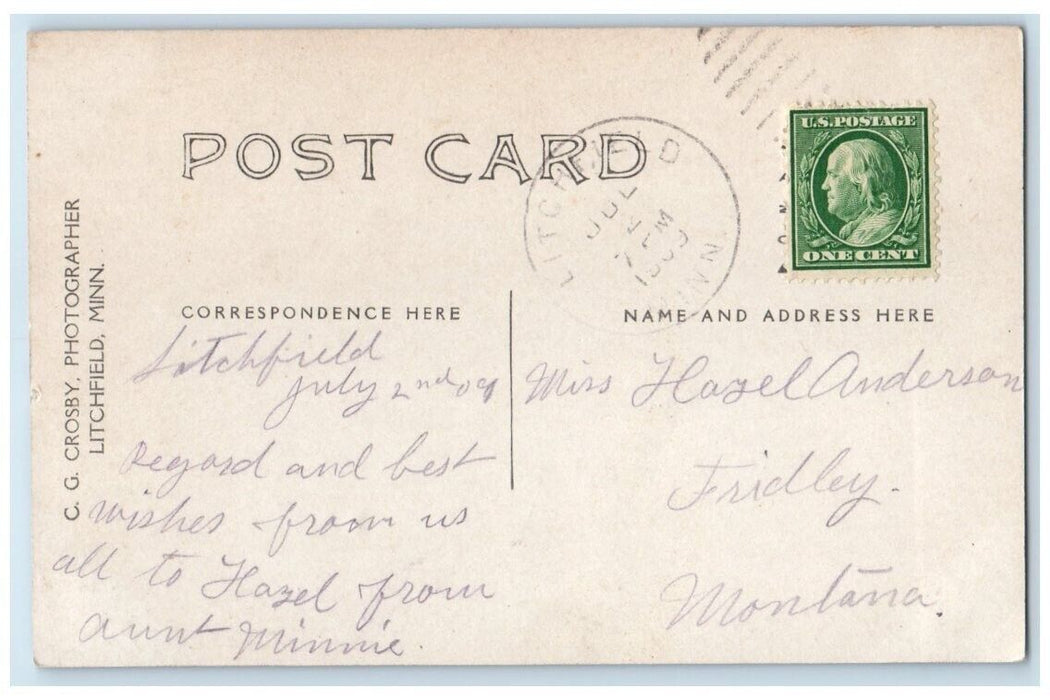 POST CARD
U.S. POSTAGE
ONE CENT
LITCHFIELD
JUL
MINN
C. G. CROSBY, PHOTOGRAPHER
LITCHFIELD, MINN.
CORRESPONDENCE HERE
Litchfield
July 2nd 09
Regard and best
wishes from us
all to Hazel from
aunt Minnie.
NAME AND ADDRESS HERE
Miss Hazel Anderson
Fridley.
Montana.